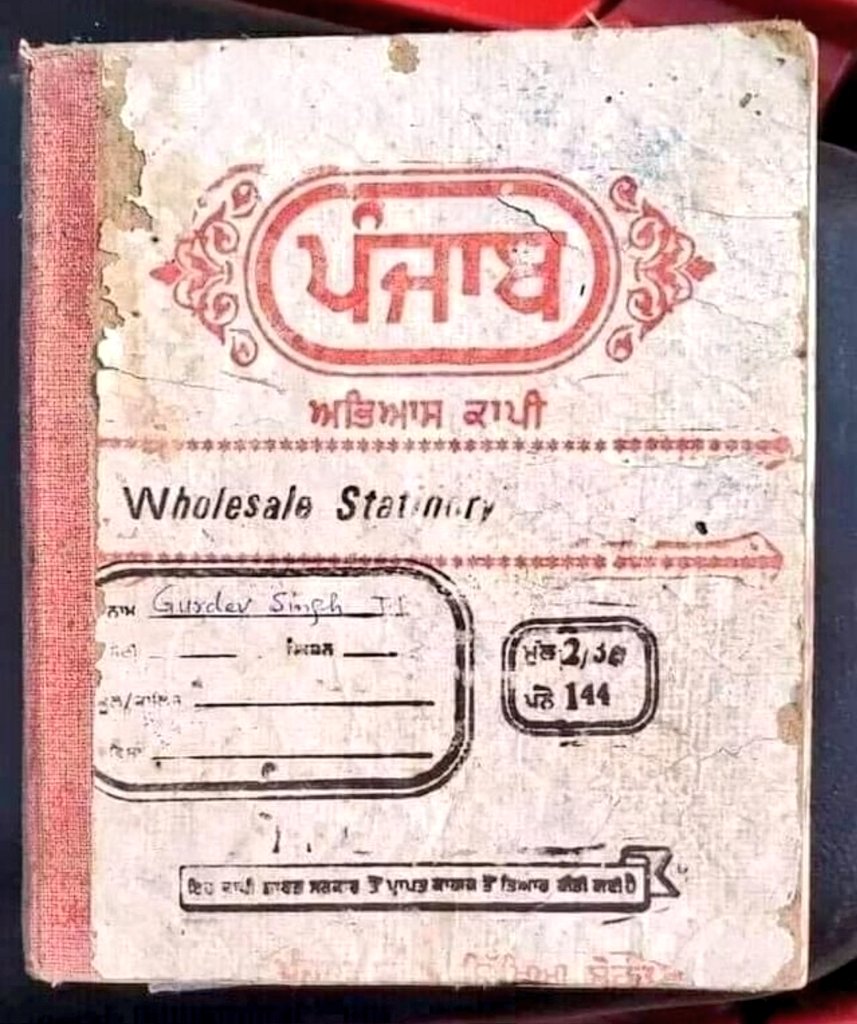 ਪੰਜਾਬ
ਅਭਿਆਸ ਕਾਪੀ
Wholesale Stationery
ਨਾਮ Gurdev Singh
ਸੈਕਸ਼ਨ
ਮੁੱਲ 2/30
ਪੰਨੇ 144
ਇਹ ਕਾਪੀ ਭਾਰਤ ਸਰਕਾਰ ਤੋਂ ਪ੍ਰਾਪਤ ਕਾਗਜ਼ ਤੋਂ ਤਿਆਰ ਕੀਤੀ ਗਈ ਹੈ